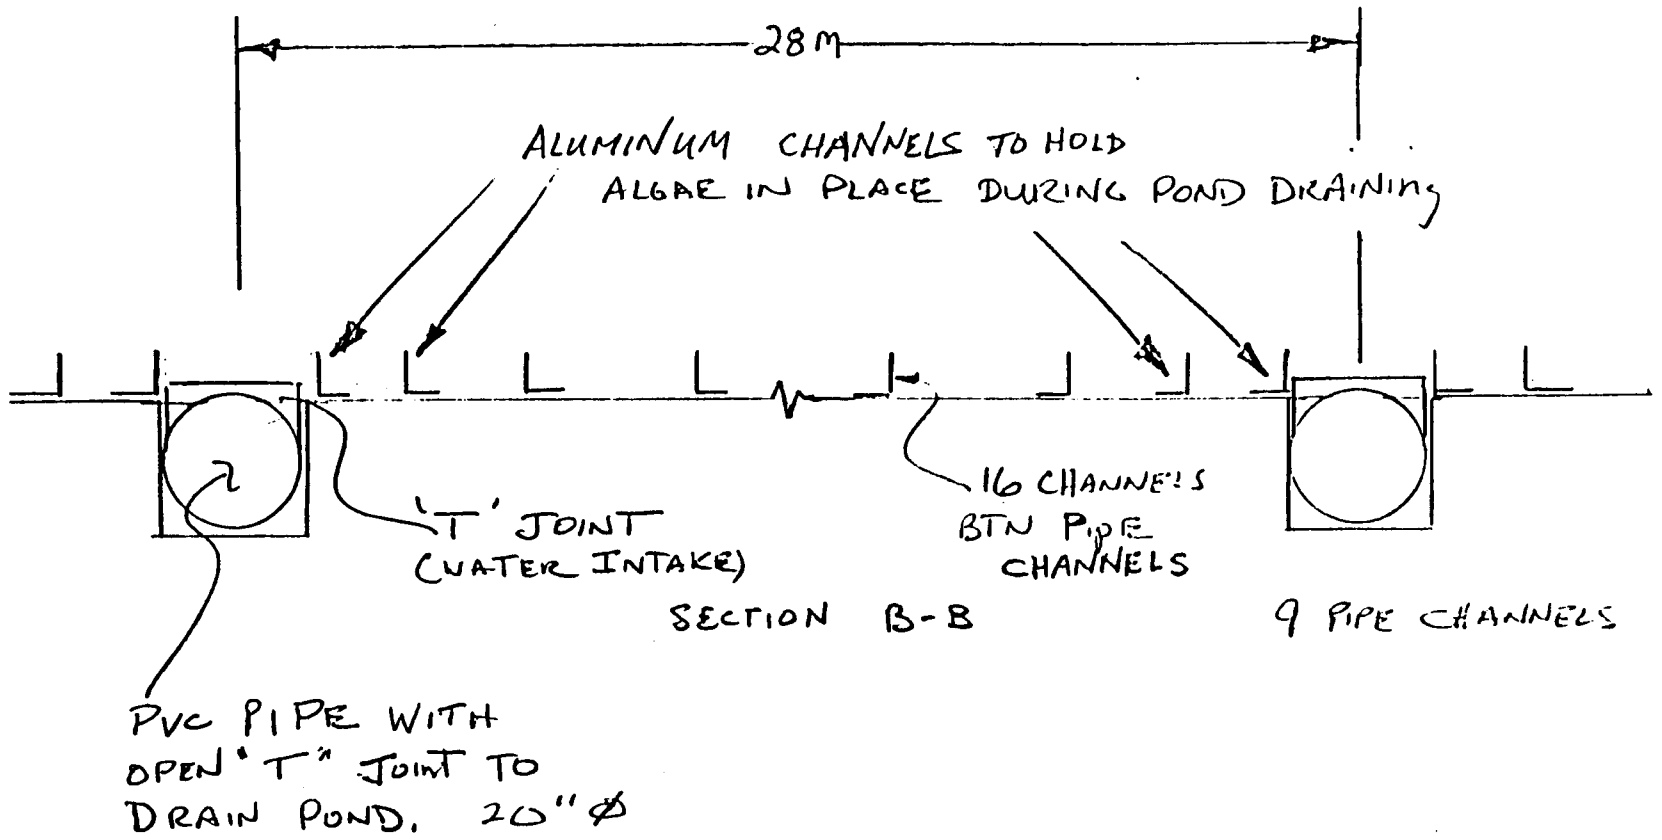 28 M
ALUMINUM CHANNELS TO HOLD
ALGAE IN PLACE DURING POND DRAINING
'T' JOINT
(WATER INTAKE)
16 CHANNELS
BTN PIPE
CHANNELS
SECTION B-B
9 PIPE CHANNELS
PVC PIPE WITH
OPEN "T" JOINT TO
DRAIN POND. 20" Ø